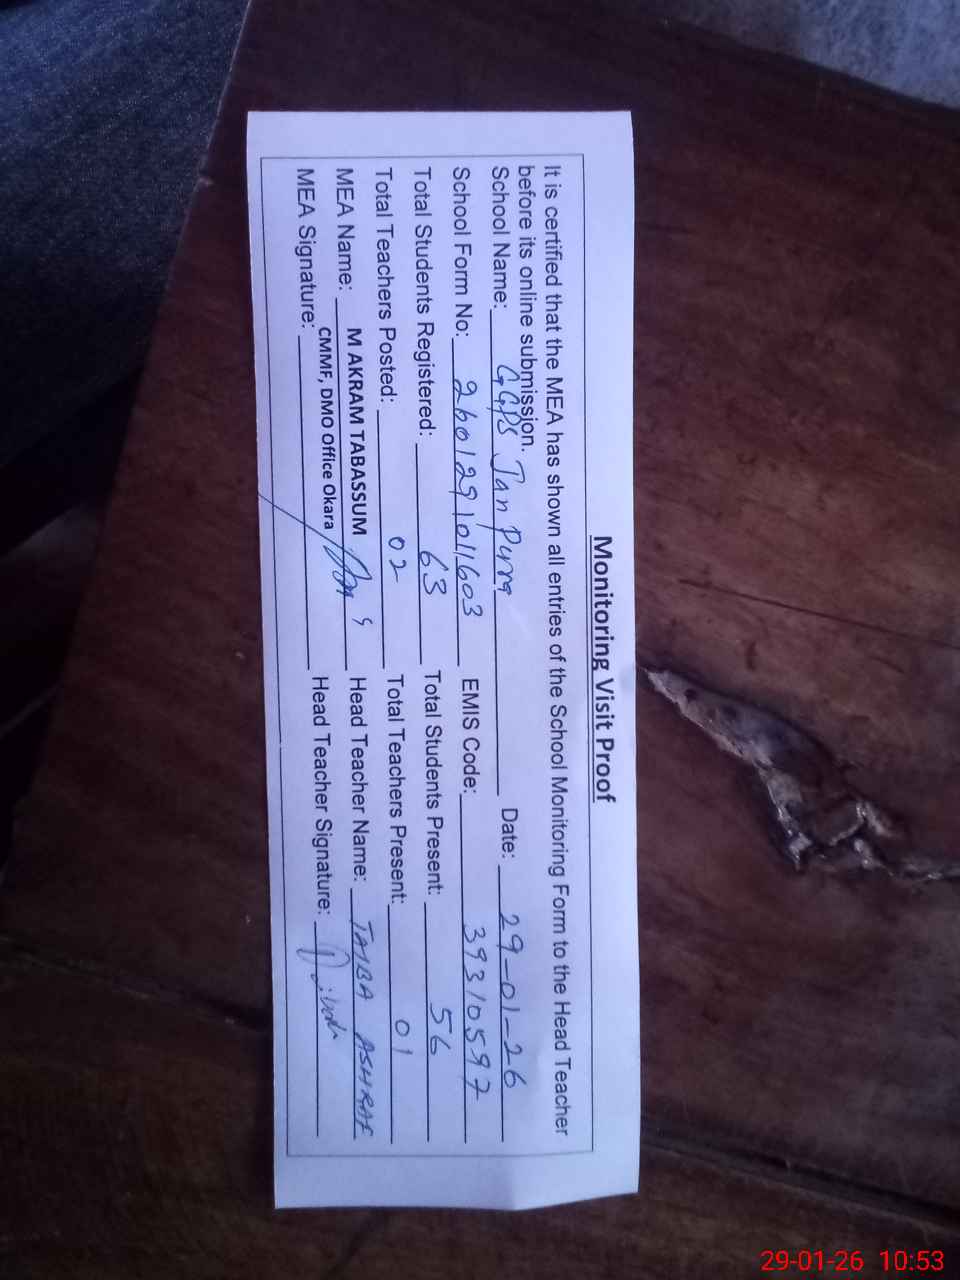 Monitoring Visit Proof
It is certified that the MEA has shown all entries of the School Monitoring Form to the Head Teacher
before its online submission.
School Name: GGPS Jan Pura Date: 29-01-26
School Form No: 260129101603 EMIS Code: 39310597
Total Students Registered: 63 Total Students Present: 56
Total Teachers Posted: 02 Total Teachers Present: 01
MEA Name: M AKRAM TABASSUM Head Teacher Name: TAIBA ASHRAF
CMMF, DMO Office Okara
MEA Signature: Head Teacher Signature:
29-01-26 10:53